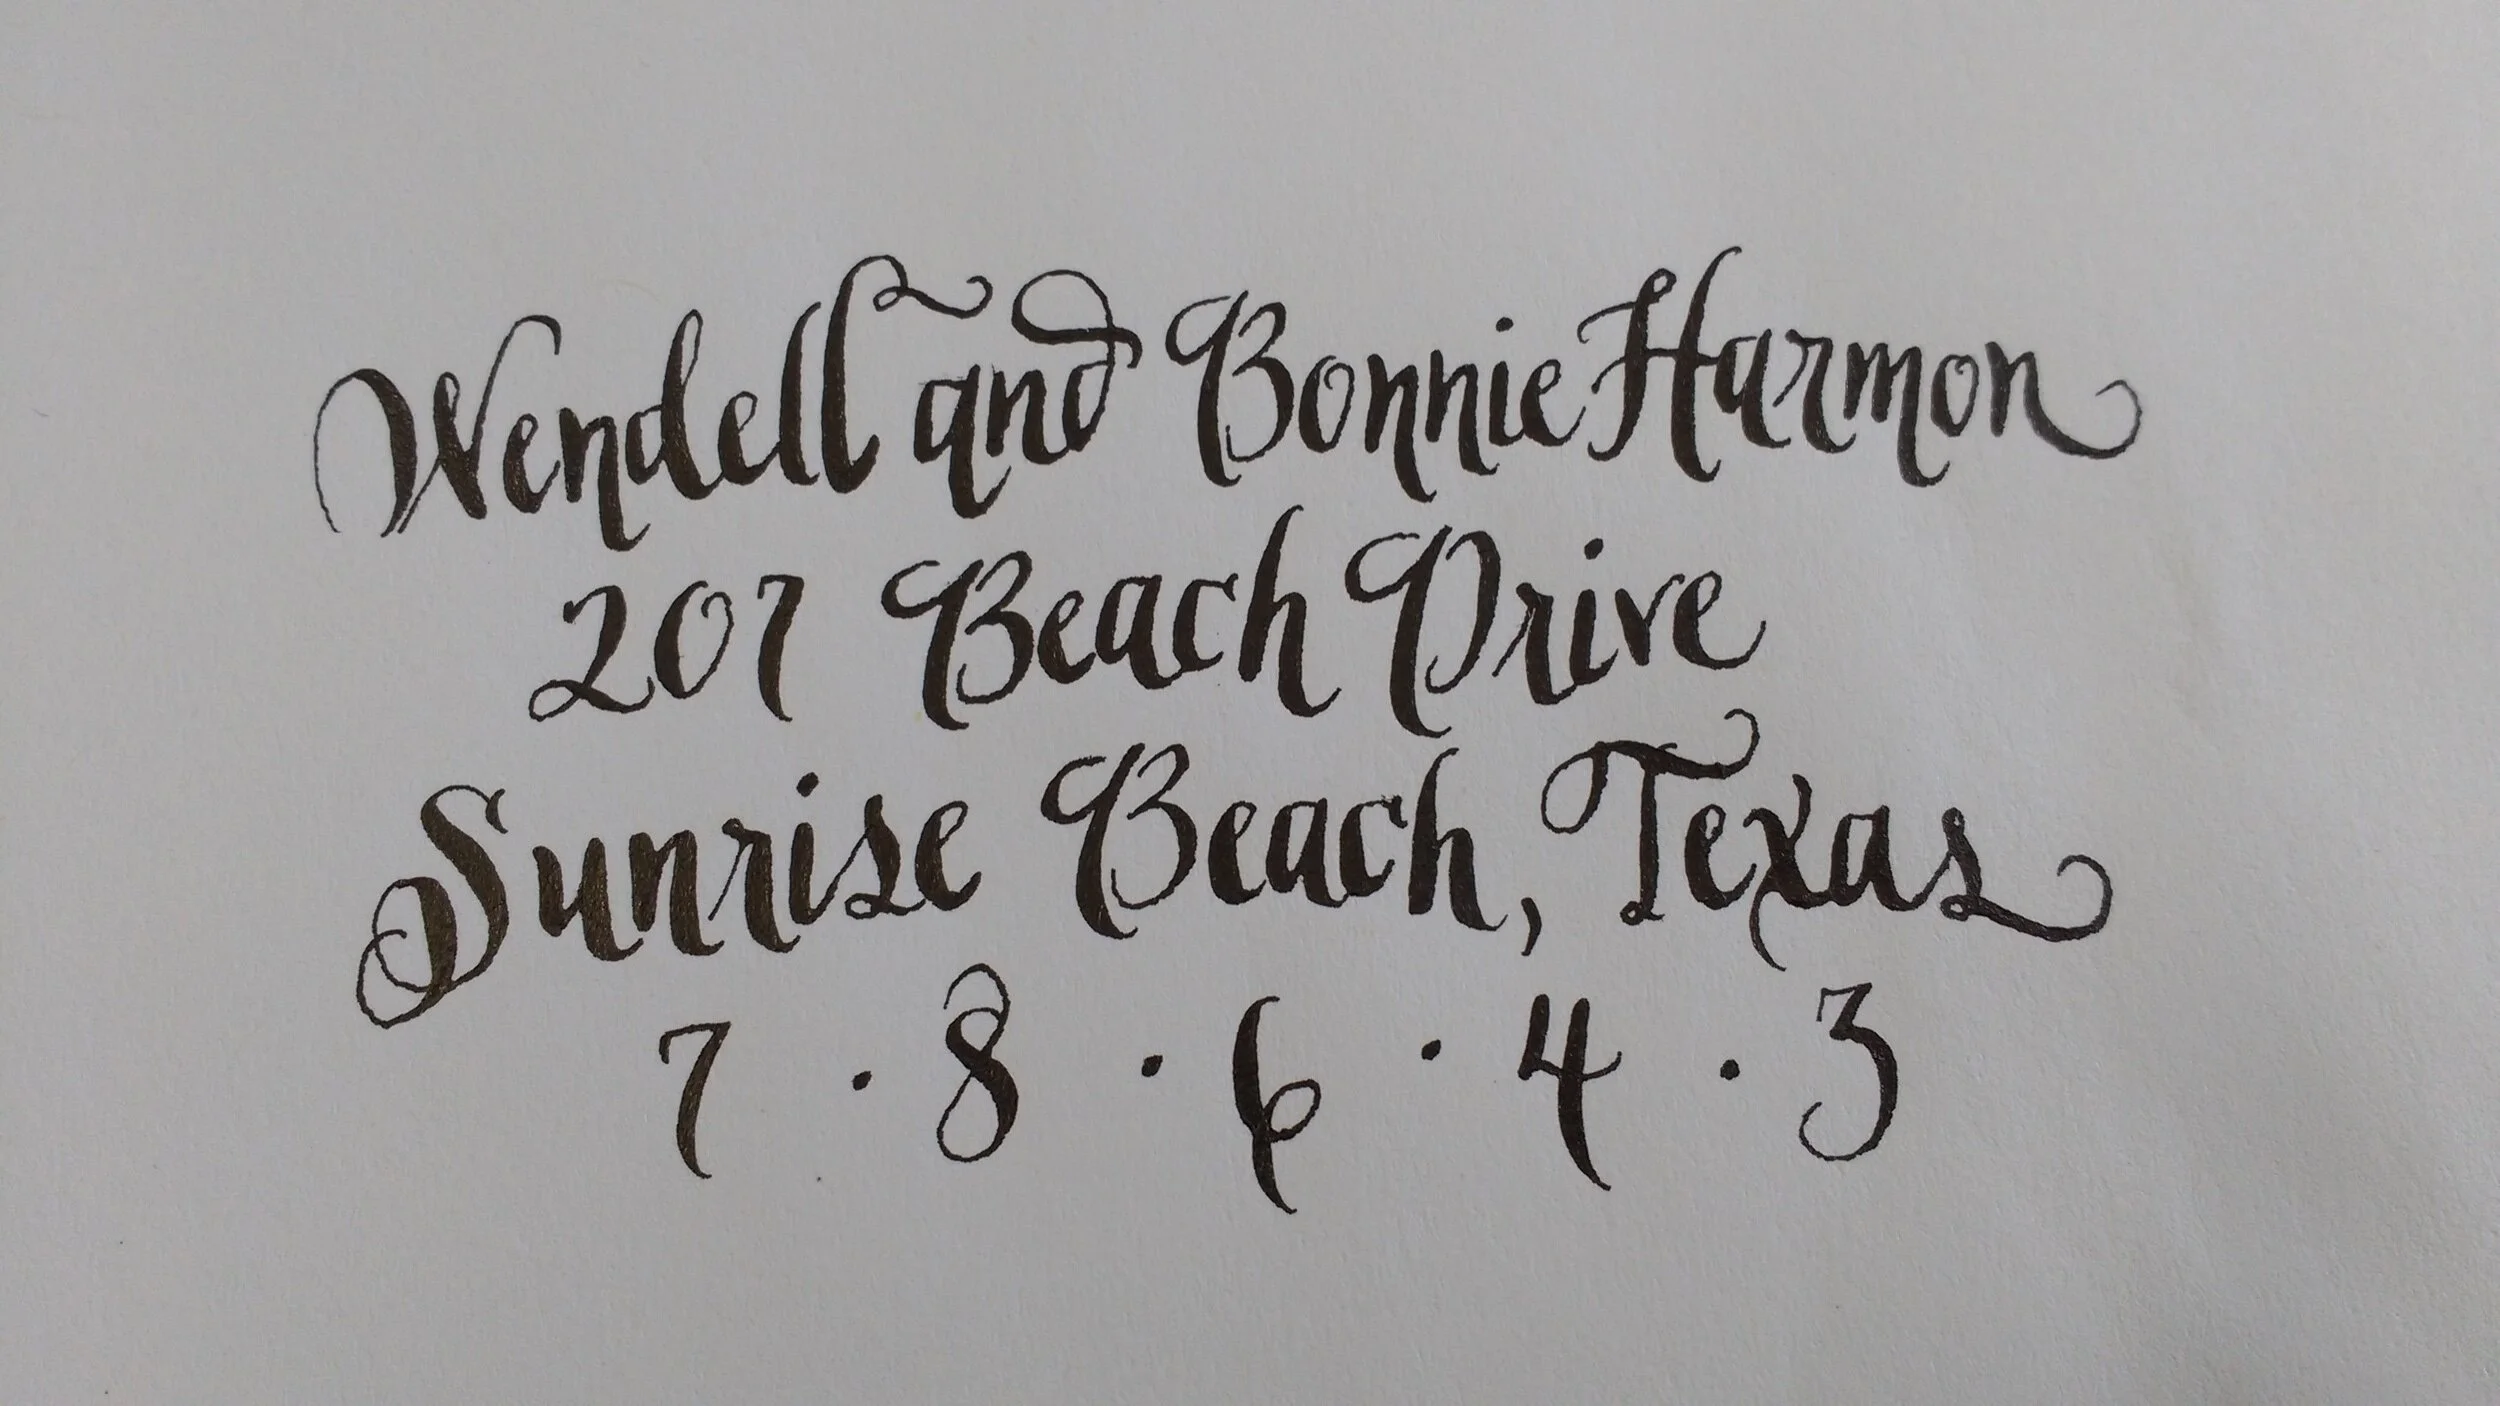 Wendell and Bonnie Harmon
207 Beach Drive
Sunrise Beach, Texas
7 · 8 · 6 · 4 · 3